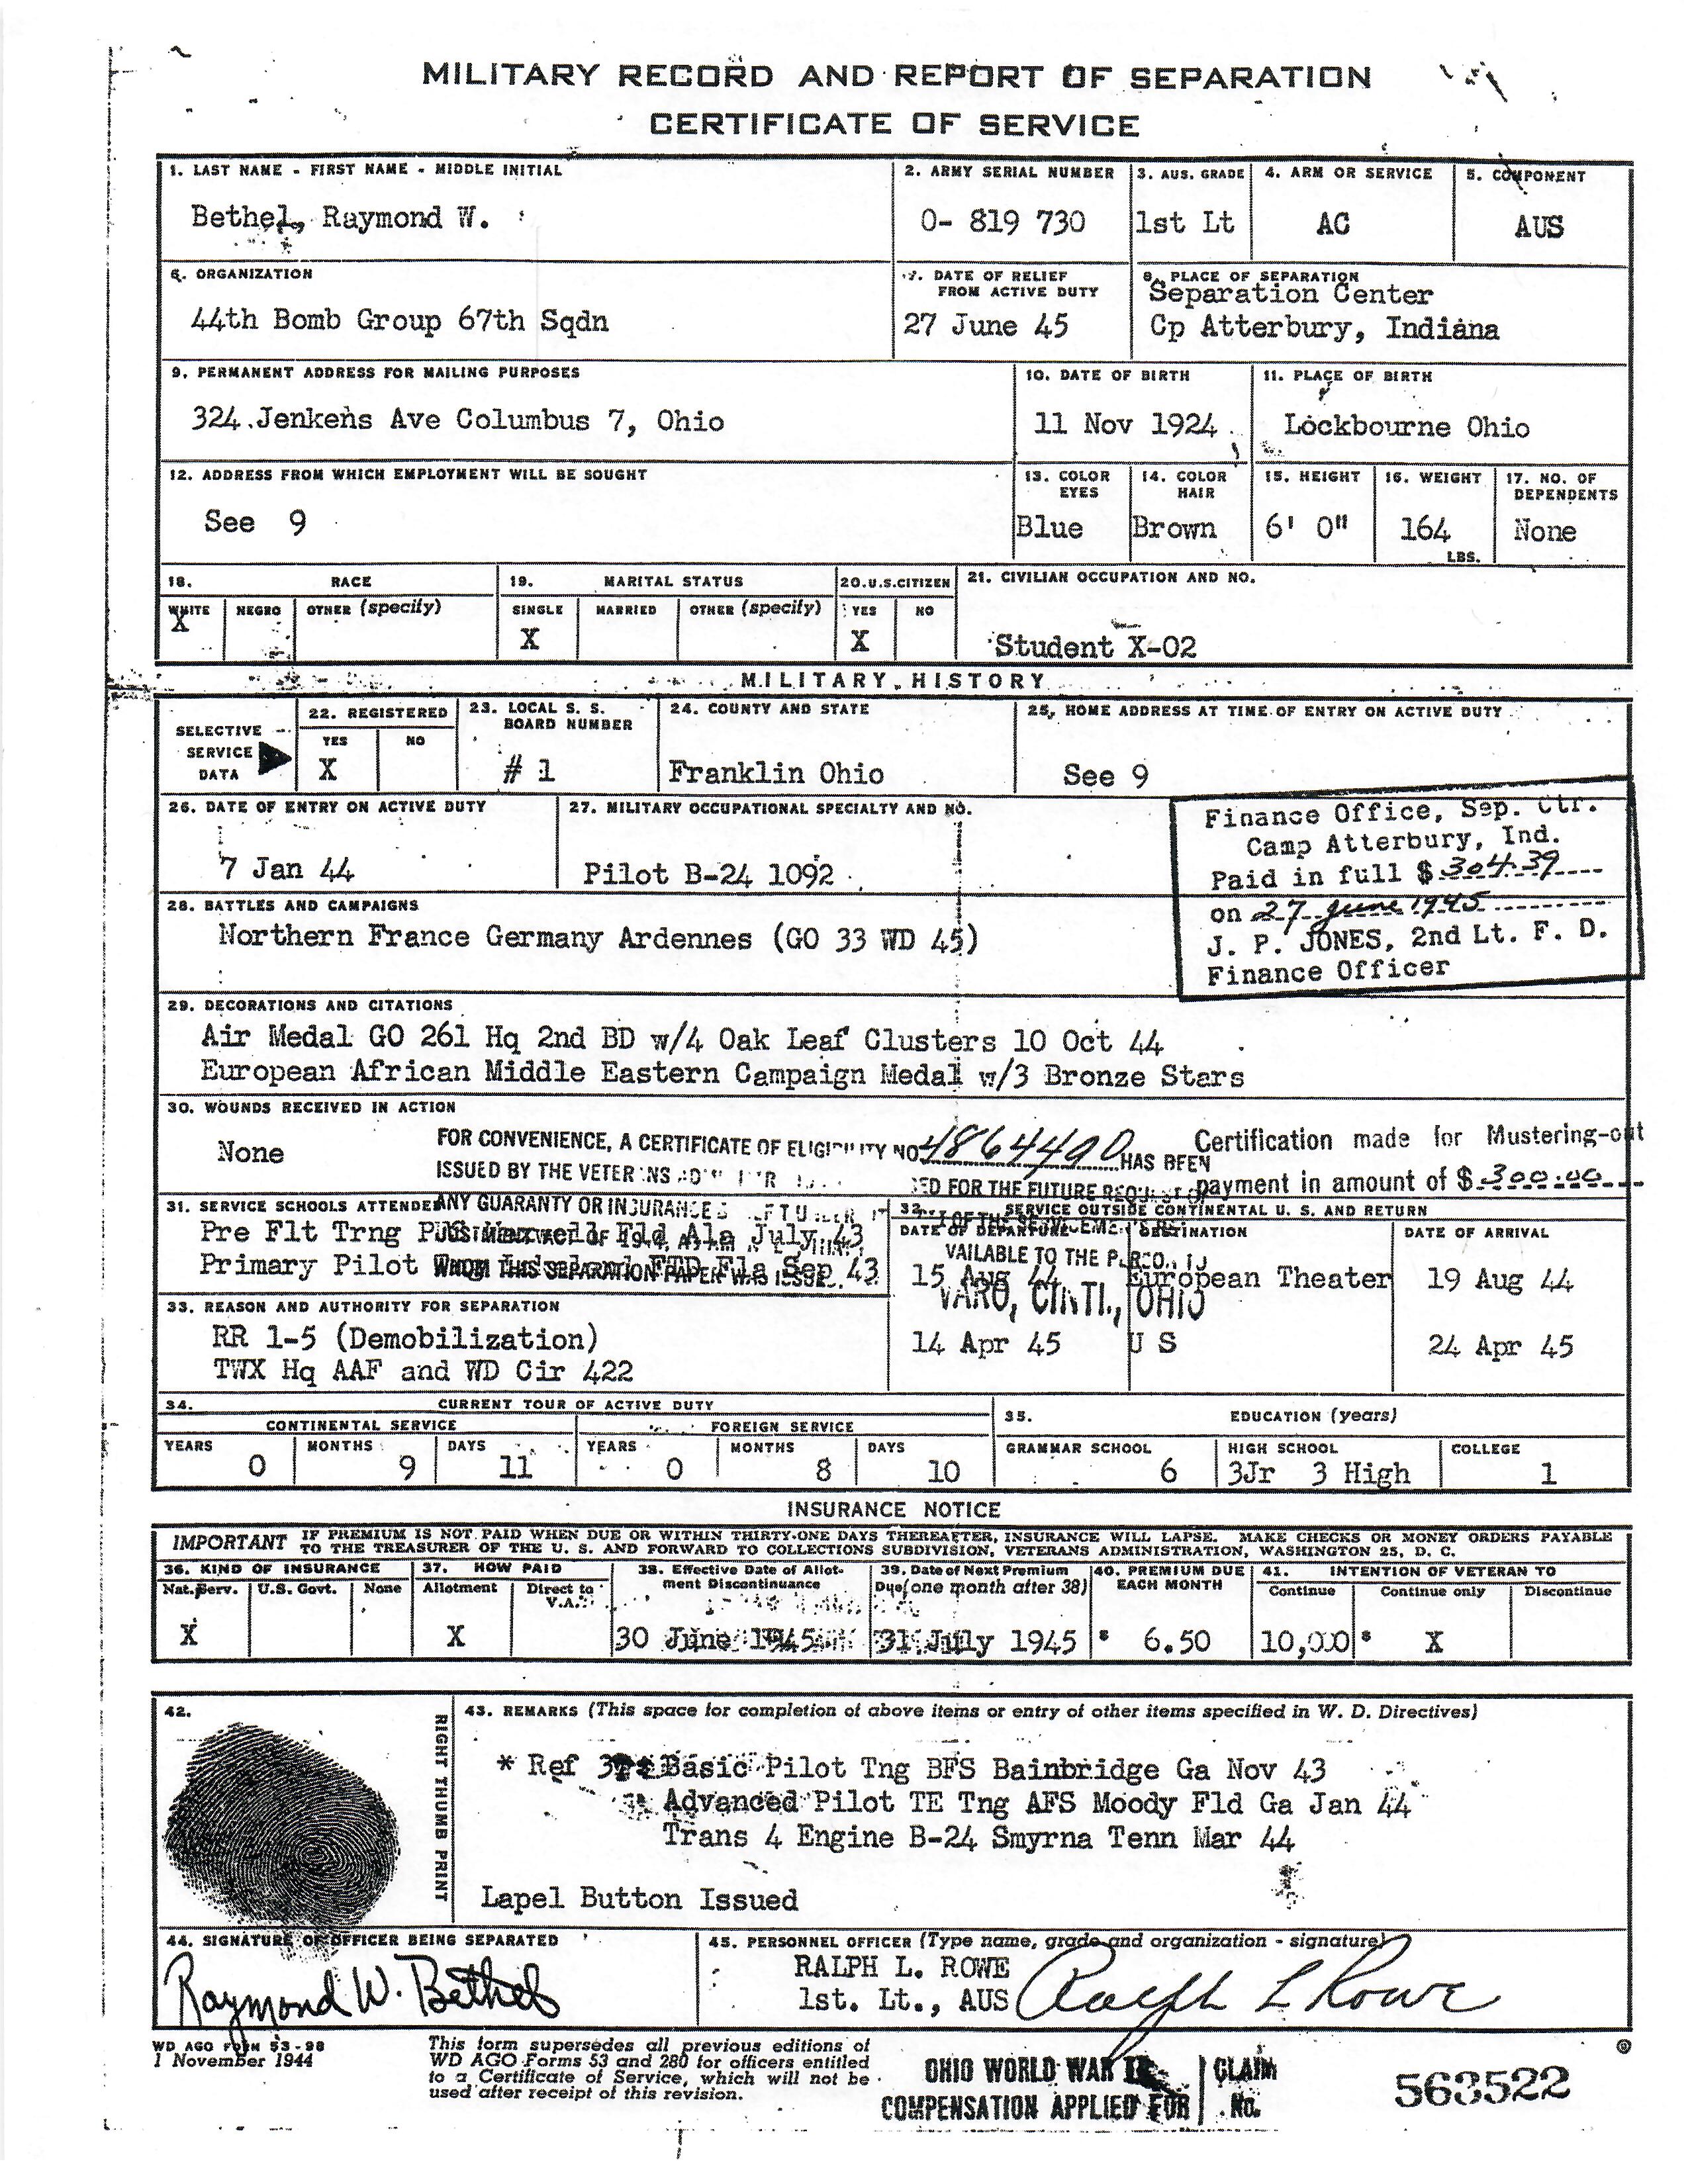 MILITARY RECORD AND REPORT OF SEPARATION
CERTIFICATE OF SERVICE
1. LAST NAME - FIRST NAME - MIDDLE INITIAL
Bethel, Raymond W.
2. ARMY SERIAL NUMBER
0- 819 730
3. AUS. GRADE
1st Lt
4. ARM OR SERVICE
AC
5. COMPONENT
AUS
6. ORGANIZATION
44th Bomb Group 67th Sqdn
7. DATE OF RELIEF
FROM ACTIVE DUTY
27 June 45
8. PLACE OF SEPARATION
Separation Center
Cp Atterbury, Indiana
9. PERMANENT ADDRESS FOR MAILING PURPOSES
324 Jenkens Ave Columbus 7, Ohio
10. DATE OF BIRTH
11 Nov 1924
11. PLACE OF BIRTH
Lockbourne Ohio
12. ADDRESS FROM WHICH EMPLOYMENT WILL BE SOUGHT
See 9
13. COLOR
EYES
Blue
14. COLOR
HAIR
Brown
15. HEIGHT
6' 0"
16. WEIGHT
164
LBS.
17. NO. OF
DEPENDENTS
None
18. RACE
WHITE NEGRO OTHER (specify)
X
19. MARITAL STATUS
SINGLE MARRIED OTHER (specify)
X
20. U.S. CITIZEN
YES NO
X
21. CIVILIAN OCCUPATION AND NO.
Student X-02
MILITARY HISTORY
SELECTIVE
SERVICE
DATA
22. REGISTERED
YES NO
X
23. LOCAL S. S.
BOARD NUMBER
# 1
24. COUNTY AND STATE
Franklin Ohio
25. HOME ADDRESS AT TIME OF ENTRY ON ACTIVE DUTY
See 9
26. DATE OF ENTRY ON ACTIVE DUTY
7 Jan 44
27. MILITARY OCCUPATIONAL SPECIALTY AND NO.
Pilot B-24 1092
Finance Office, Sep. Ctr.
Camp Atterbury, Ind.
Paid in full $ 304.39
on 27 June 1945
J. P. JONES, 2nd Lt. F. D.
Finance Officer
28. BATTLES AND CAMPAIGNS
Northern France Germany Ardennes (GO 33 WD 45)
29. DECORATIONS AND CITATIONS
Air Medal GO 261 Hq 2nd BD w/4 Oak Leaf Clusters 10 Oct 44
European African Middle Eastern Campaign Medal w/3 Bronze Stars
30. WOUNDS RECEIVED IN ACTION
None
FOR CONVENIENCE, A CERTIFICATE OF ELIGIBILITY NO. 4864490 HAS BEEN
ISSUED BY THE VETERANS
FOR THE FUTURE
ANY GUARANTY OR INSURANCE
AVAILABLE TO THE
WHOM THIS SEPARATION PAPER WAS
VARO, CINTI., OHIO
Certification made for Mustering-out
payment in amount of $ 300.00
31. SERVICE SCHOOLS ATTENDED
Pre Flt Trng Maxwell Fld Ala July 43
Primary Pilot Fla Sep 43
32. SERVICE OUTSIDE CONTINENTAL U. S. AND RETURN
DATE OF DEPARTURE DESTINATION DATE OF ARRIVAL
15 Aug 44 European Theater 19 Aug 44
14 Apr 45 U S 24 Apr 45
33. REASON AND AUTHORITY FOR SEPARATION
RR 1-5 (Demobilization)
TWX Hq AAF and WD Cir 422
34. CURRENT TOUR OF ACTIVE DUTY
CONTINENTAL SERVICE FOREIGN SERVICE
YEARS MONTHS DAYS YEARS MONTHS DAYS
0 9 11 0 8 10
35. EDUCATION (years)
GRAMMAR SCHOOL HIGH SCHOOL COLLEGE
6 3Jr 3 High 1
INSURANCE NOTICE
IMPORTANT IF PREMIUM IS NOT PAID WHEN DUE OR WITHIN THIRTY-ONE DAYS THEREAFTER, INSURANCE WILL LAPSE. MAKE CHECKS OR MONEY ORDERS PAYABLE
TO THE TREASURER OF THE U. S. AND FORWARD TO COLLECTIONS SUBDIVISION, VETERANS ADMINISTRATION, WASHINGTON 25, D. C.
36. KIND OF INSURANCE
Nat. Serv. U.S. Govt. None
X
37. HOW PAID
Allotment Direct to
V.A.
X
38. Effective Date of Allot-
ment Discontinuance
30 June 1945
39. Date of Next Premium
Due (one month after 38)
31 July 1945
40. PREMIUM DUE
EACH MONTH
$ 6.50
41. INTENTION OF VETERAN TO
Continue Continue only Discontinue
10,000 $ X
42.
RIGHT THUMB PRINT
43. REMARKS (This space for completion of above items or entry of other items specified in W. D. Directives)
* Ref Basic Pilot Tng BFS Bainbridge Ga Nov 43
Advanced Pilot TE Tng AFS Moody Fld Ga Jan 44
Trans 4 Engine B-24 Smyrna Tenn Mar 44
Lapel Button Issued
44. SIGNATURE OF OFFICER BEING SEPARATED
Raymond W. Bethel
45. PERSONNEL OFFICER (Type name, grade and organization - signature)
RALPH L. ROWE
1st. Lt., AUS
Ralph L Rowe
WD AGO FORM 53-98
1 November 1944
This form supersedes all previous editions of
WD AGO Forms 53 and 280 for officers entitled
to a Certificate of Service, which will not be
used after receipt of this revision.
OHIO WORLD WAR II
COMPENSATION APPLIED FOR
CLAIM
No.
563522